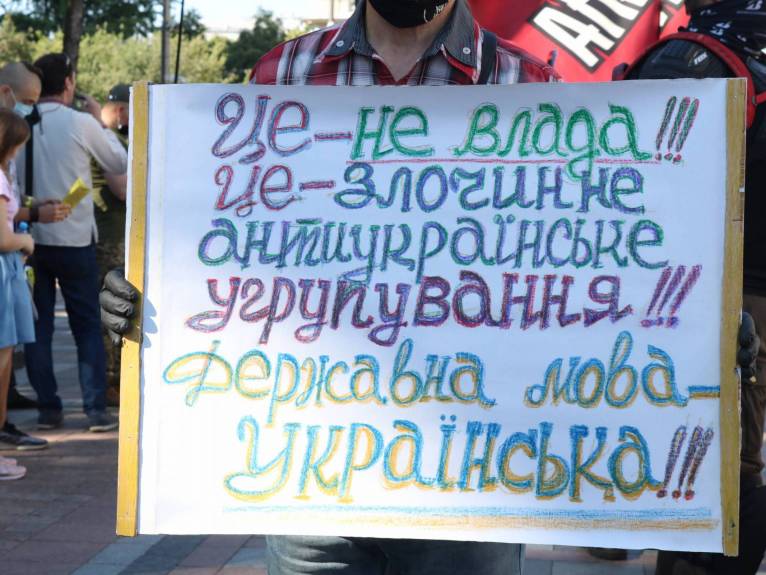 Це-не влада!!!
Це-злочинне
антиукраїнське
угрупування!!!
Державна мова-
УКРАЇНСЬКА!!!